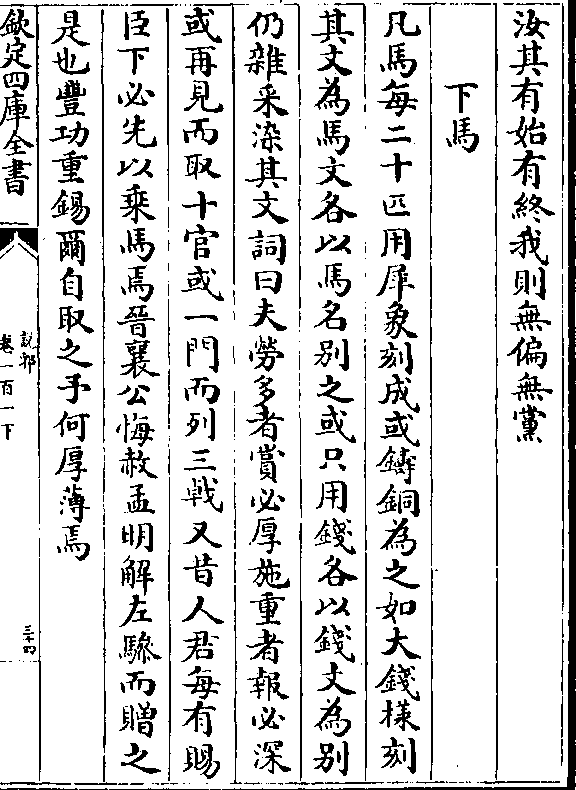 汝其有始有終我則無偏無黨
下馬
凡馬每二十匹用犀象刻成或鑄銅為之如大錢様刻
其文為馬文各以馬名别之或只用錢各以錢文為别
仍雜采染其文詞曰夫勞多者賞必厚施重者報必深
或再見而取十官或一門而列三㦸又昔人君每有賜
臣下必先以乘馬焉晉襄公悔赦孟明解左驂而贈之
是也豐功重錫爾自取之予何厚薄焉
欽定四庫全書
說郛
卷一百一下
三十四